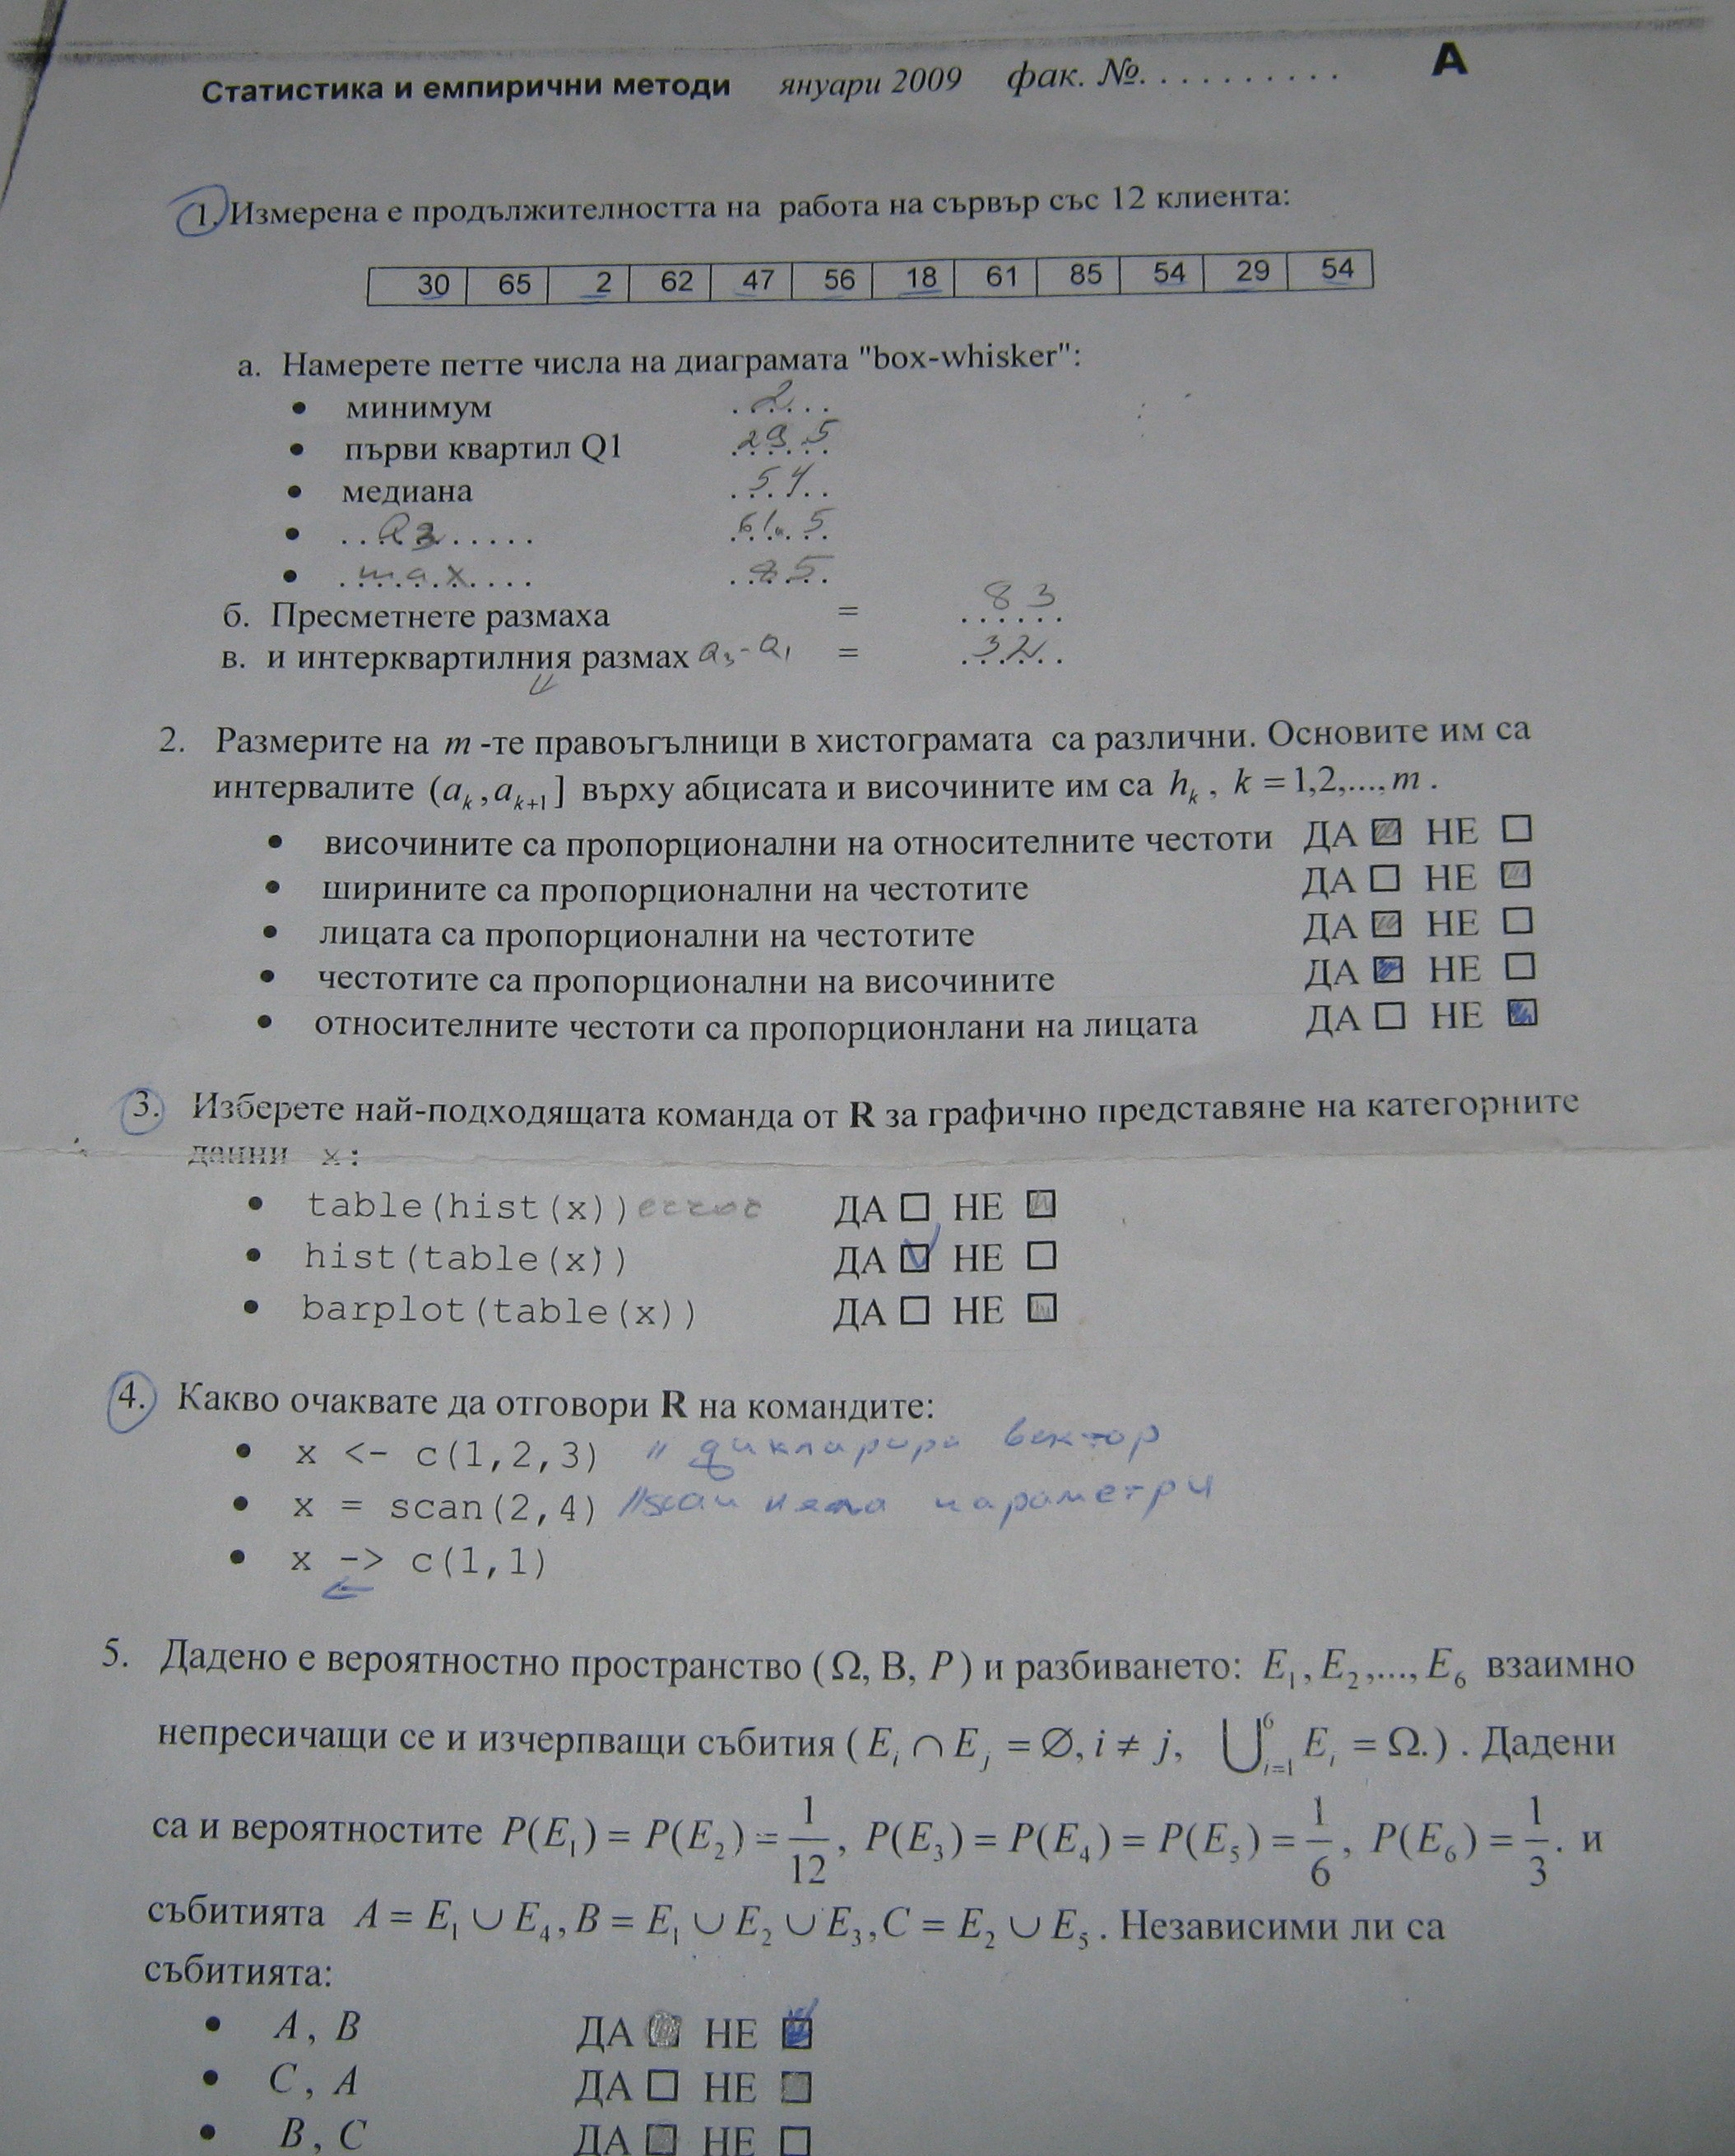 Статистика и емпирични методи януари 2009 фак. №. . . . . . . . . . A
1. Измерена е продължителността на работа на сървър със 12 клиента:
30 65 2 62 47 56 18 61 85 54 29 54
а. Намерете петте числа на диаграмата "box-whisker":
• минимум 2
• първи квартил Q1 29.5
• медиана 54
• Q3 61.5
• max 85
б. Пресметнете размаха = 83
в. и интерквартилния размах Q3-Q1 = 32
2. Размерите на m -те правоъгълници в хистограмата са различни. Основите им са
интервалите (a_k, a_{k+1}] върху абцисата и височините им са h_k , k = 1,2,...,m .
• височините са пропорционални на относителните честоти ДА НЕ
• ширините са пропорционални на честотите ДА НЕ
• лицата са пропорционални на честотите ДА НЕ
• честотите са пропорционални на височините ДА НЕ
• относителните честоти са пропорционлани на лицата ДА НЕ
3. Изберете най-подходящата команда от R за графично представяне на категорните
данни x:
• table(hist(x)) error ДА НЕ
• hist(table(x)) ДА НЕ
• barplot(table(x)) ДА НЕ
4. Какво очаквате да отговори R на командите:
• x <- c(1,2,3) // декларира вектор
• x = scan(2,4) //scan няма параметри
• x -> c(1,1)
←
5. Дадено е вероятностно пространство (Ω, B, P) и разбиването: E₁, E₂,..., E₆ взаимно
непресичащи се и изчерпващи събития ( E_i ∩ E_j = Ø, i ≠ j, ⋃_{i=1}^6 E_i = Ω.) . Дадени
са и вероятностите P(E₁) = P(E₂) = 1/12, P(E₃) = P(E₄) = P(E₅) = 1/6, P(E₆) = 1/3. и
събитията A = E₁ ∪ E₄, B = E₁ ∪ E₂ ∪ E₃, C = E₂ ∪ E₅. Независими ли са
събитията:
• A, B ДА НЕ
• C, A ДА НЕ
• B, C ДА НЕ